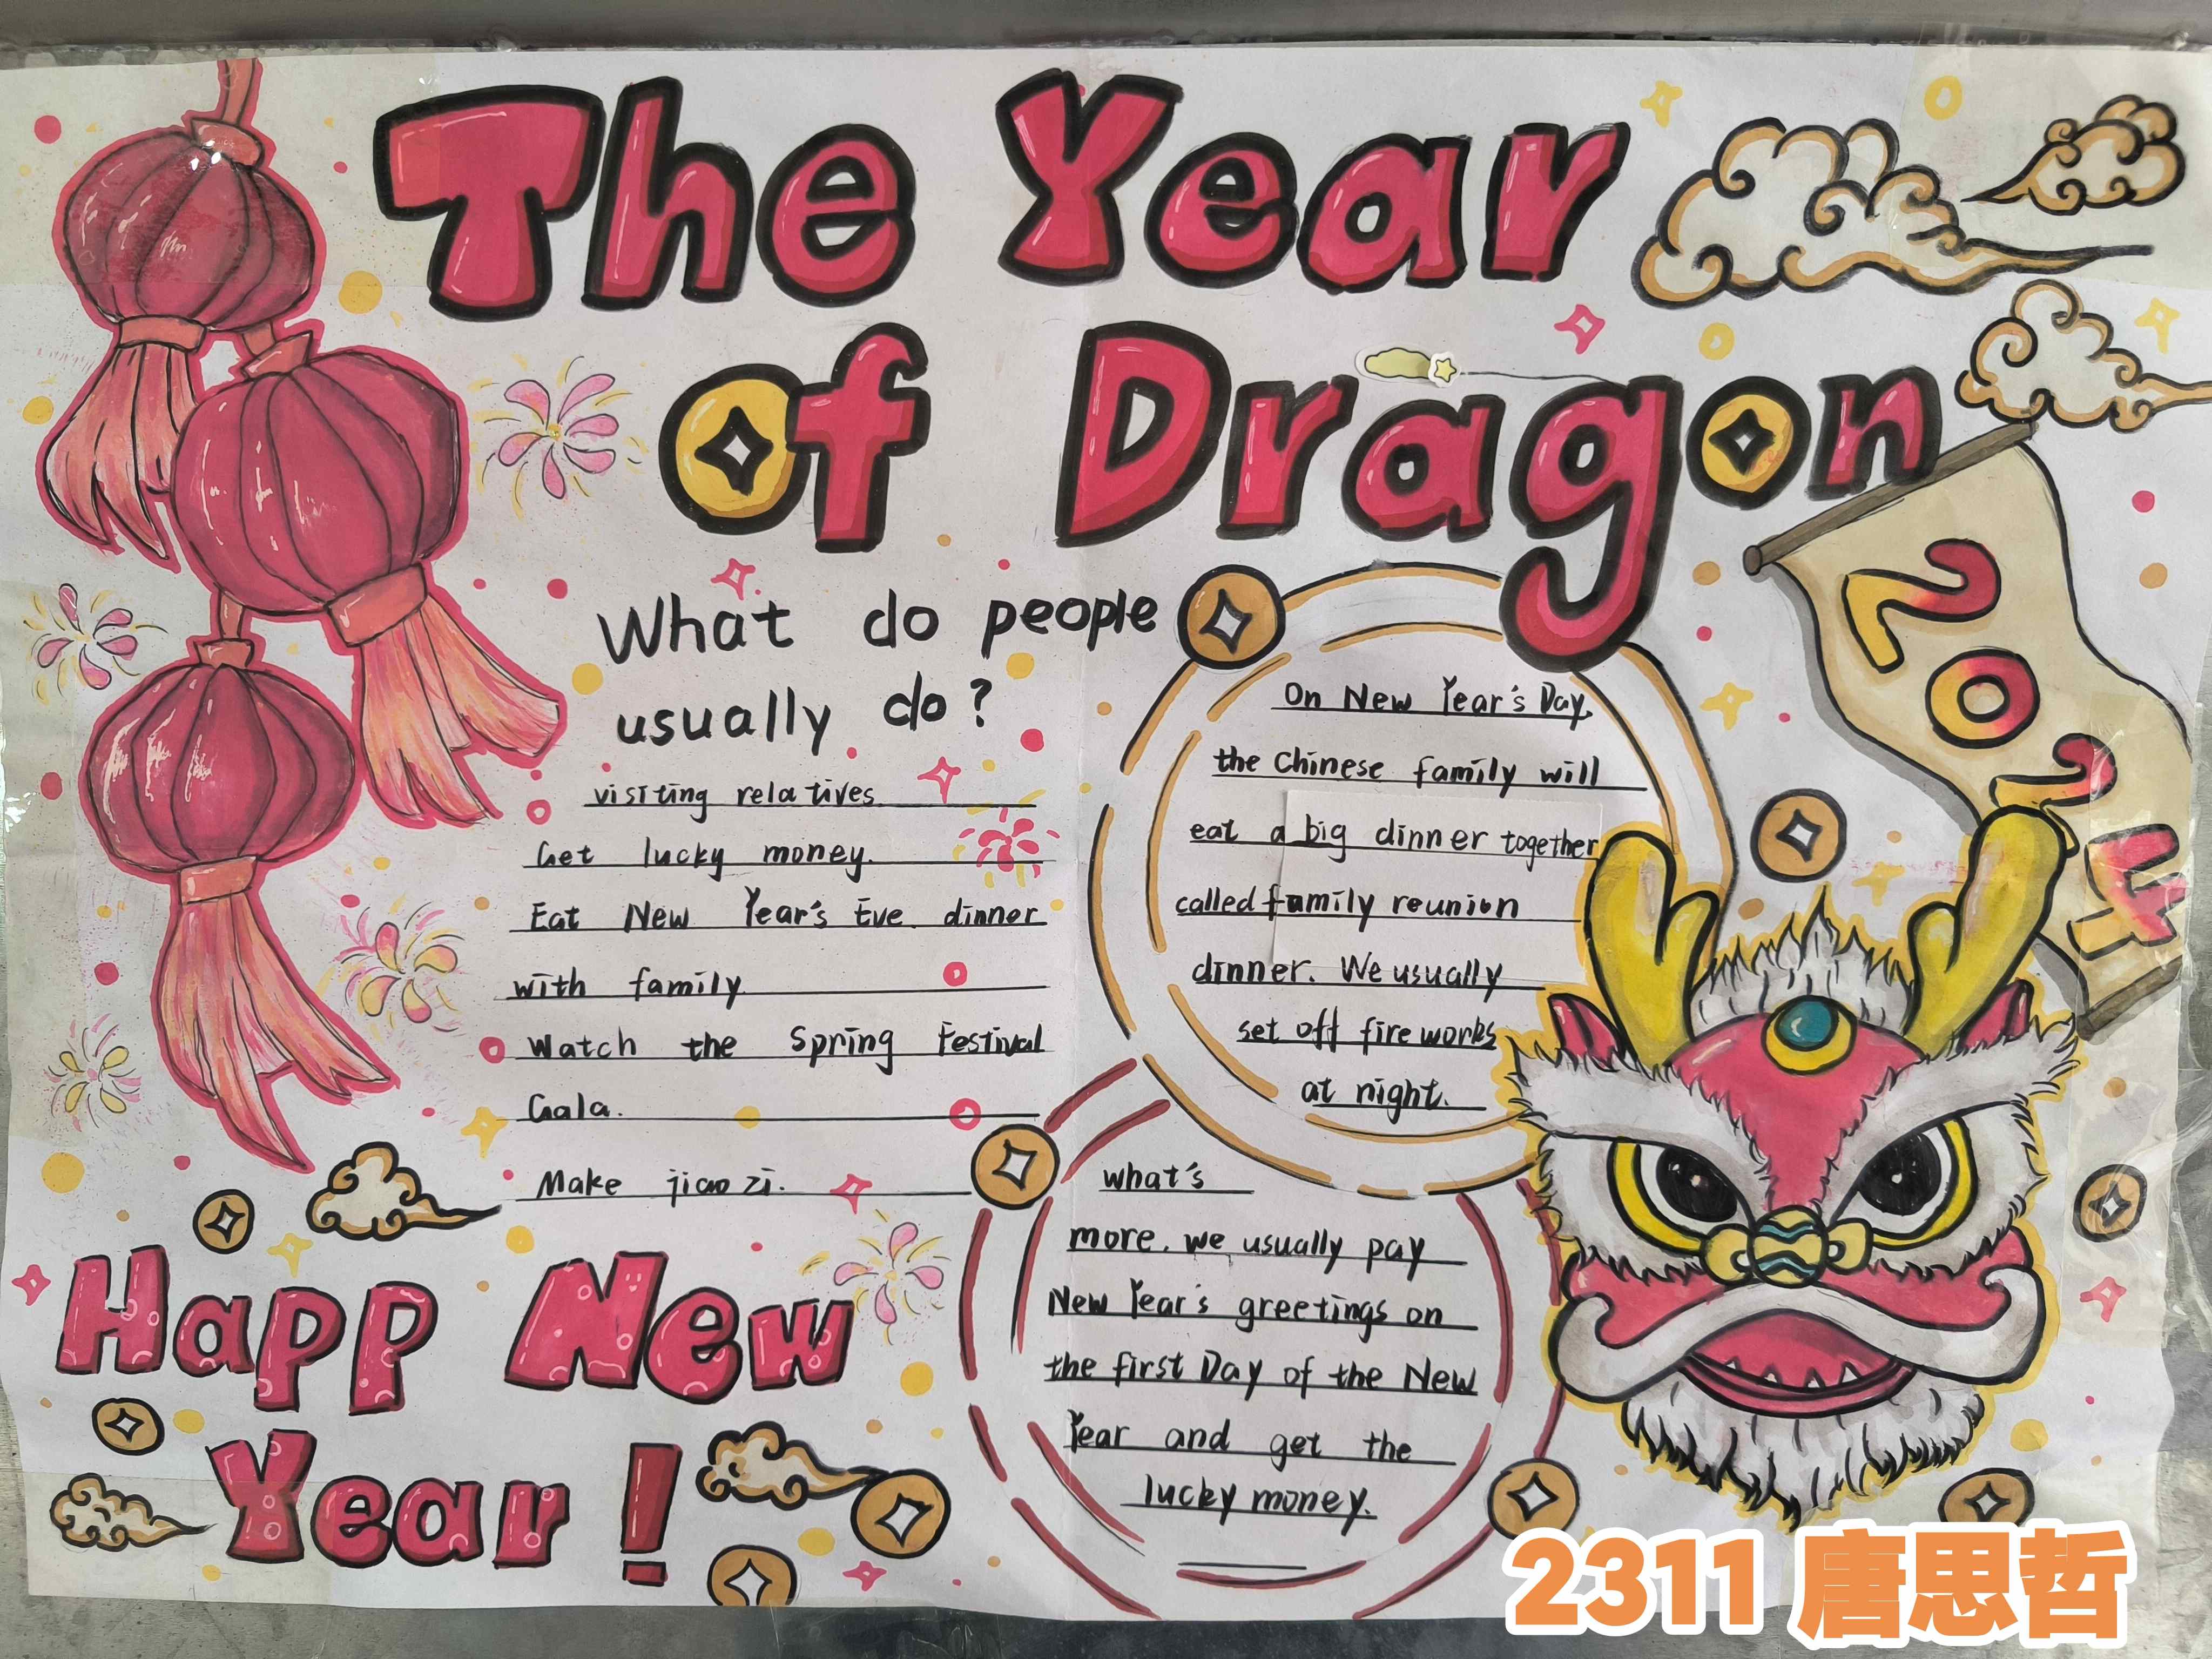 The Year
of Dragon
2024
What do people
usually do?
visiting relatives
Get lucky money.
Eat New Year's Eve dinner
with family
Watch the Spring Festival
Gala.
Make jiao zi.
On New Year's Day,
the Chinese family will
eat a big dinner together
called family reunion
dinner. We usually
set off fire works
at night.
what's
more, we usually pay
New Year's greetings on
the first Day of the New
Year and get the
lucky money.
Happ New
Year!
2311 唐思哲